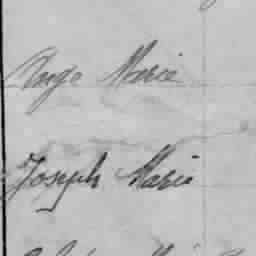 Ange Marie
Joseph Marie